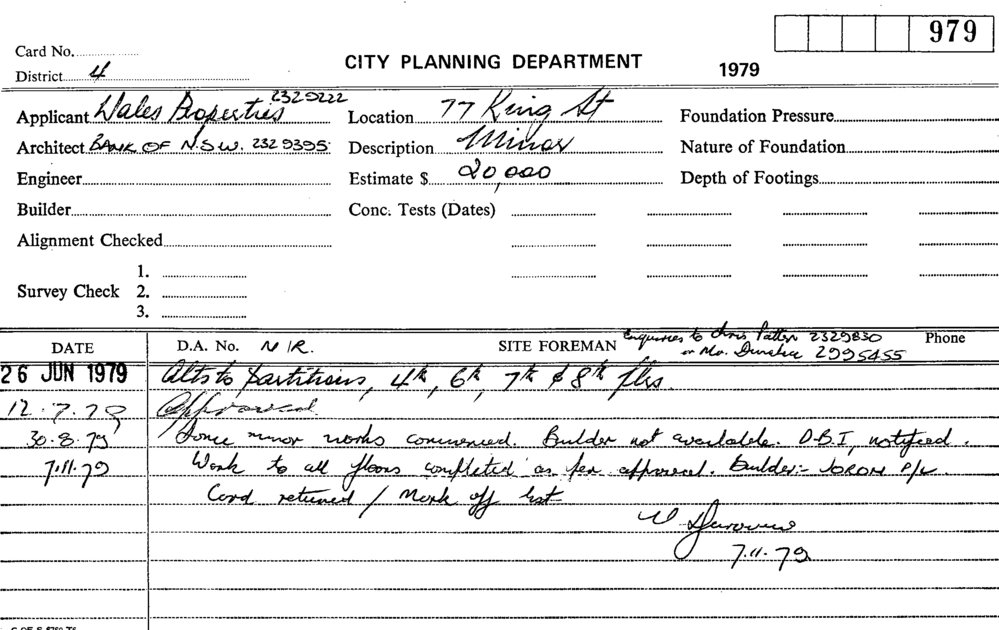 979
Card No.
District 4
CITY PLANNING DEPARTMENT
1979
Applicant Wales Properties 2329222
Location 77 King St
Foundation Pressure
Architect BANK OF N.S.W. 232 9395
Description Minor
Nature of Foundation
Engineer
Estimate $ 20,000
Depth of Footings
Builder
Conc. Tests (Dates)
Alignment Checked
Survey Check
1.
2.
3.
DATE
D.A. No. N/R.
SITE FOREMAN Enquiries to Chris Patten 2329830
or Mr. 2995455
Phone
26 JUN 1979 Alts to partitions, 4th, 6th, 7th & 8th flrs
12.7.79 Approved
30.8.79 Some minor works commenced. Builder not available. D.B.I. notified.
7.11.79 Work to all floors completed as per approval. Builder:- P/L
Card returned / Mark off list
7.11.79